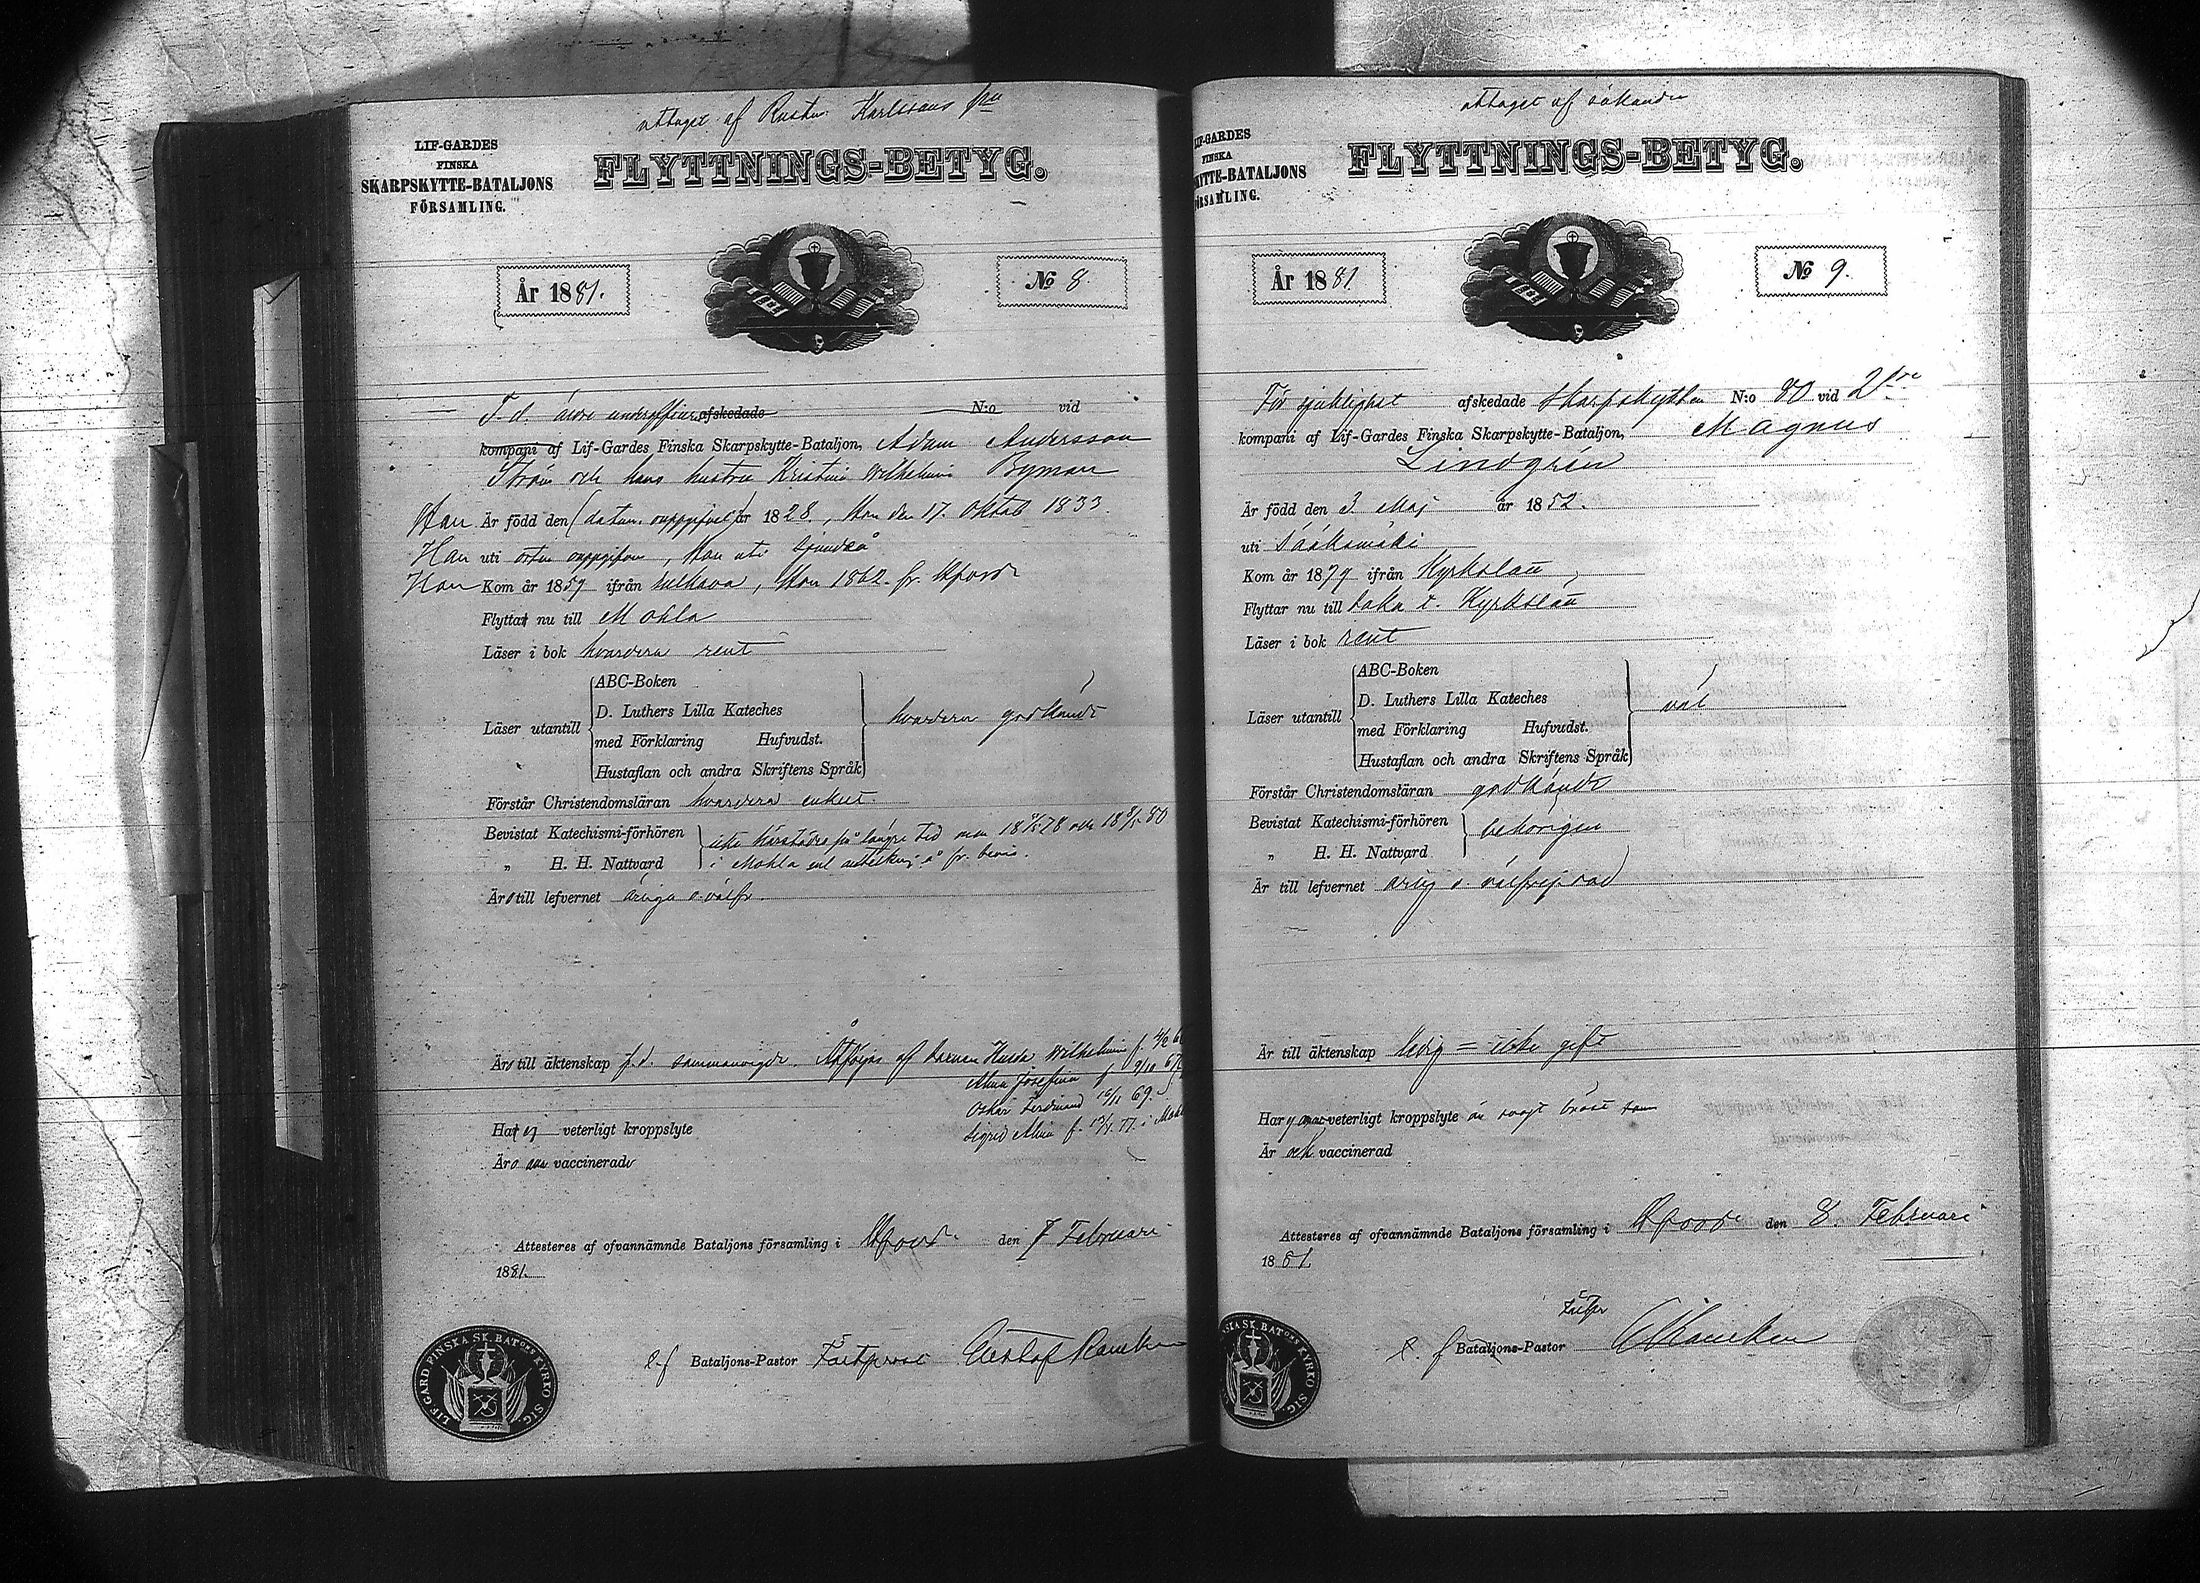 uttaget af Karlssons fru
LIF-GARDES
FINSKA
SKARPSKYTTE-BATALJONS
FÖRSAMLING.
FLYTTNINGS-BETYG.
År 1881.
No 8.
F. d. äldre underofficer afskedade N:o vid
kompani af Lif-Gardes Finska Skarpskytte-Bataljon, Adam Andersson
Ström och hans hustru Kristina Wilhelmina Byman
Han Är född den (datum ouppgifvet) år 1828, Hon den 17. Oktob 1833.
Han uti orten ouppgifven, Hon uti Sjundeå
Han Kom år 1859 ifrån, Hon 1862. fr.
Flyttat nu till Mohla
Läser i bok hvardera rent
Läser utantill
ABC-Boken
D. Luthers Lilla Kateches
med Förklaring Hufvudst.
Hustaflan och andra Skriftens Språk
hvardera godkändt
Förstår Christendomsläran hvardera enkelt.
Bevistat Katechismi-förhören
„ H. H. Nattvard
icke härstädes på längre tid men 78 och 80
i Mohla enl fr. bevis.
Äro till lefvernet ärliga o välfr.
Äro till äktenskap f.d. sammanvigde. Åtföljas af barnen Hulda Wilhelmina f.
Alma Josefina f 9/10 67
Oskar Ferdinand 69.
Sigrid Alina f. 77. i
Hafva ej veterligt kroppslyte
Äro vaccinerade
Attesteres af ofvannämnde Bataljons församling i den 7 Februari
1881.
e.f Bataljons-Pastor Gustaf
LIF-GARD FINSKA SK. BATONS KYRKO SIG.
uttaget af sökanden
LIF-GARDES
FINSKA
SKYTTE-BATALJONS
FÖRSAMLING.
FLYTTNINGS-BETYG.
År 1881
No 9.
För sjuklighet afskedade Skarpskytten N:o 80 vid 2dra
kompani af Lif-Gardes Finska Skarpskytte-Bataljon, Magnus
Lindgrén
Är född den 3. Maj år 1852.
uti Sääksmäki
Kom år 1879 ifrån Kyrkslätt
Flyttar nu till baka t. Kyrkslätt
Läser i bok rent
Läser utantill
ABC-Boken
D. Luthers Lilla Kateches
med Förklaring Hufvudst.
Hustaflan och andra Skriftens Språk
väl
Förstår Christendomsläran godkändt
Bevistat Katechismi-förhören
„ H. H. Nattvard
behörigen
Är till lefvernet ärlig o. välfrejdad
Är till äktenskap ledig = icke gift
Har ej annat veterligt kroppslyte än svagt bröst
Är och vaccinerad
Attesteres af ofvannämnde Bataljons församling i den 8. Februari
1881
e. f Bataljons-Pastor
SKA SK. BATONS KYRKO SIG.